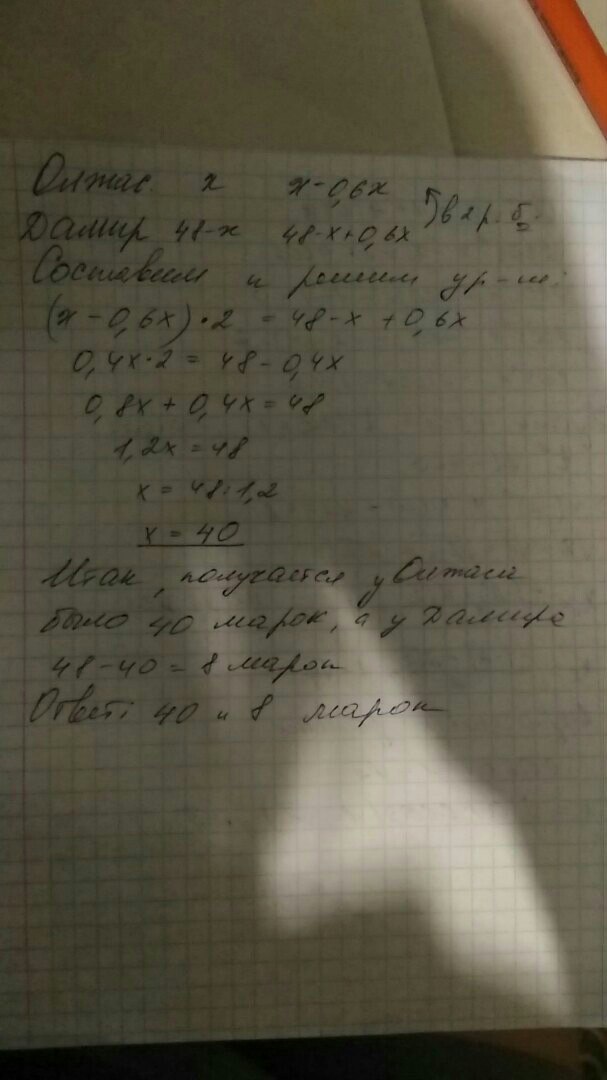 Олжас x x-0,6x
Дамир 48-x 48-x+0,6x в 2 р. б.
Составим и решим ур-ие:
(x-0,6x)•2 = 48-x+0,6x
0,4x•2 = 48-0,4x
0,8x+0,4x=48
1,2x=48
x = 48:1,2
x = 40
Итак, получается у Олжаса
было 40 марок, а у Дамира
48-40=8 марок
Ответ: 40 и 8 марок